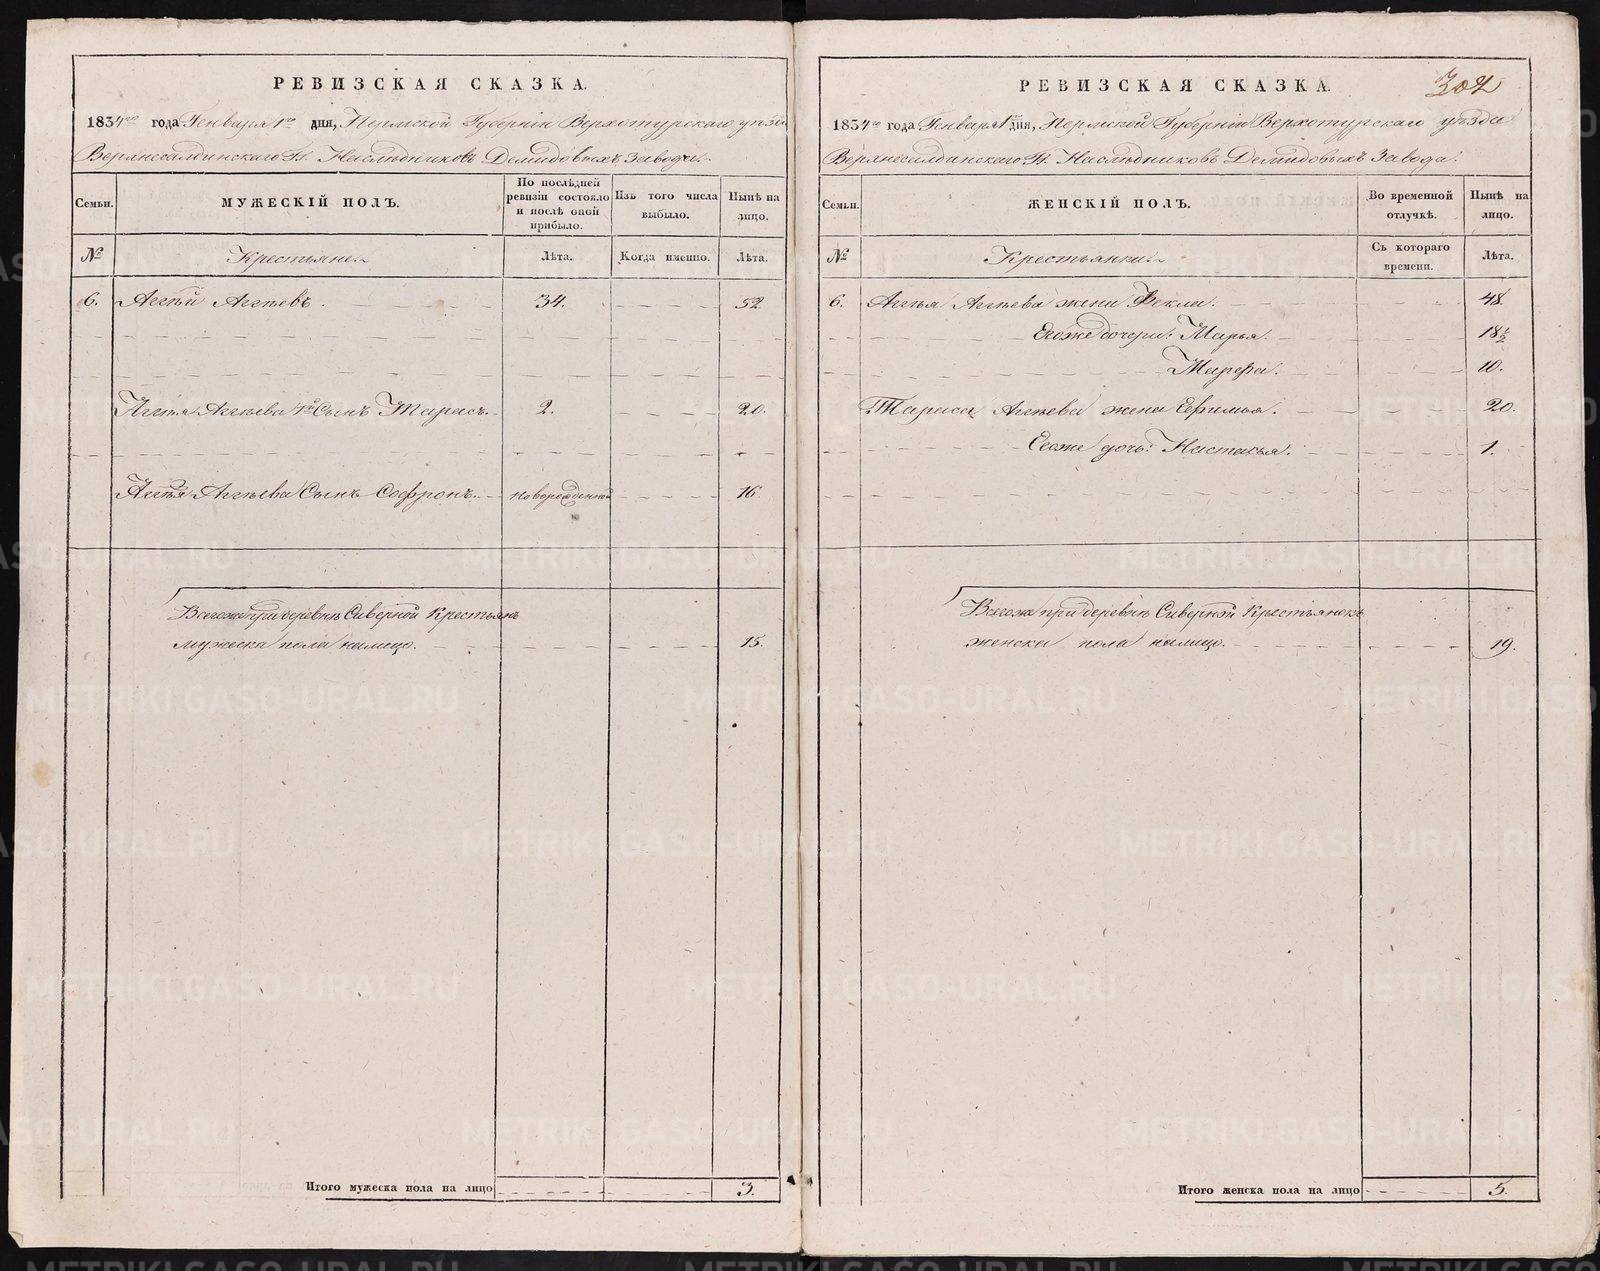 РЕВИЗСКАЯ СКАЗКА.
1834го года Генваря 1го дня, Пермской Губернiи Верхотурскаго уѣзда
Верхнесалдинскаго Гг. Наслѣдниковъ Демидовыхъ завода.
Семьи. МУЖЕСКІЙ ПОЛЪ. По послѣдней ревизіи состояло и послѣ оной прибыло. Изъ того числа выбыло. Нынѣ на лицо.
№ Крестьяне. Лѣта. Когда именно. Лѣта.
6. Аггѣй Аггѣевъ. 34. 52.
Аггѣя Аггѣева 1й Сынъ Тарасъ. 2. 20.
Аггѣя Аггѣева Сынъ Софронъ. новорожденной 16.
Всего же при деревнѣ Сиверной Крестьянъ
мужеска пола налицо. 15.
Итого мужеска пола на лицо 3.
302
РЕВИЗСКАЯ СКАЗКА.
1834го года Генваря 1го дня, Пермской Губернiи Верхотурскаго уѣзда
Верхнесалдинскаго Гг. Наслѣдниковъ Демидовыхъ Завода.
Семьи. ЖЕНСКІЙ ПОЛЪ. Во временной отлучкѣ. Нынѣ на лицо.
№ Крестьянки. Съ котораго времени. Лѣта.
6. Аггѣя Аггѣева жена Фекла. 48.
Егоже дочери: Марья. 18½
Марфа. 10.
Тараса Аггѣева жена Ефимья. 20.
Егоже дочь: Настасья. 1.
Всего же при деревнѣ Сиверной Крестьянокъ
женска пола налицо. 19.
Итого женска пола на лицо 5.
METRIKI.GASO-URAL.RU